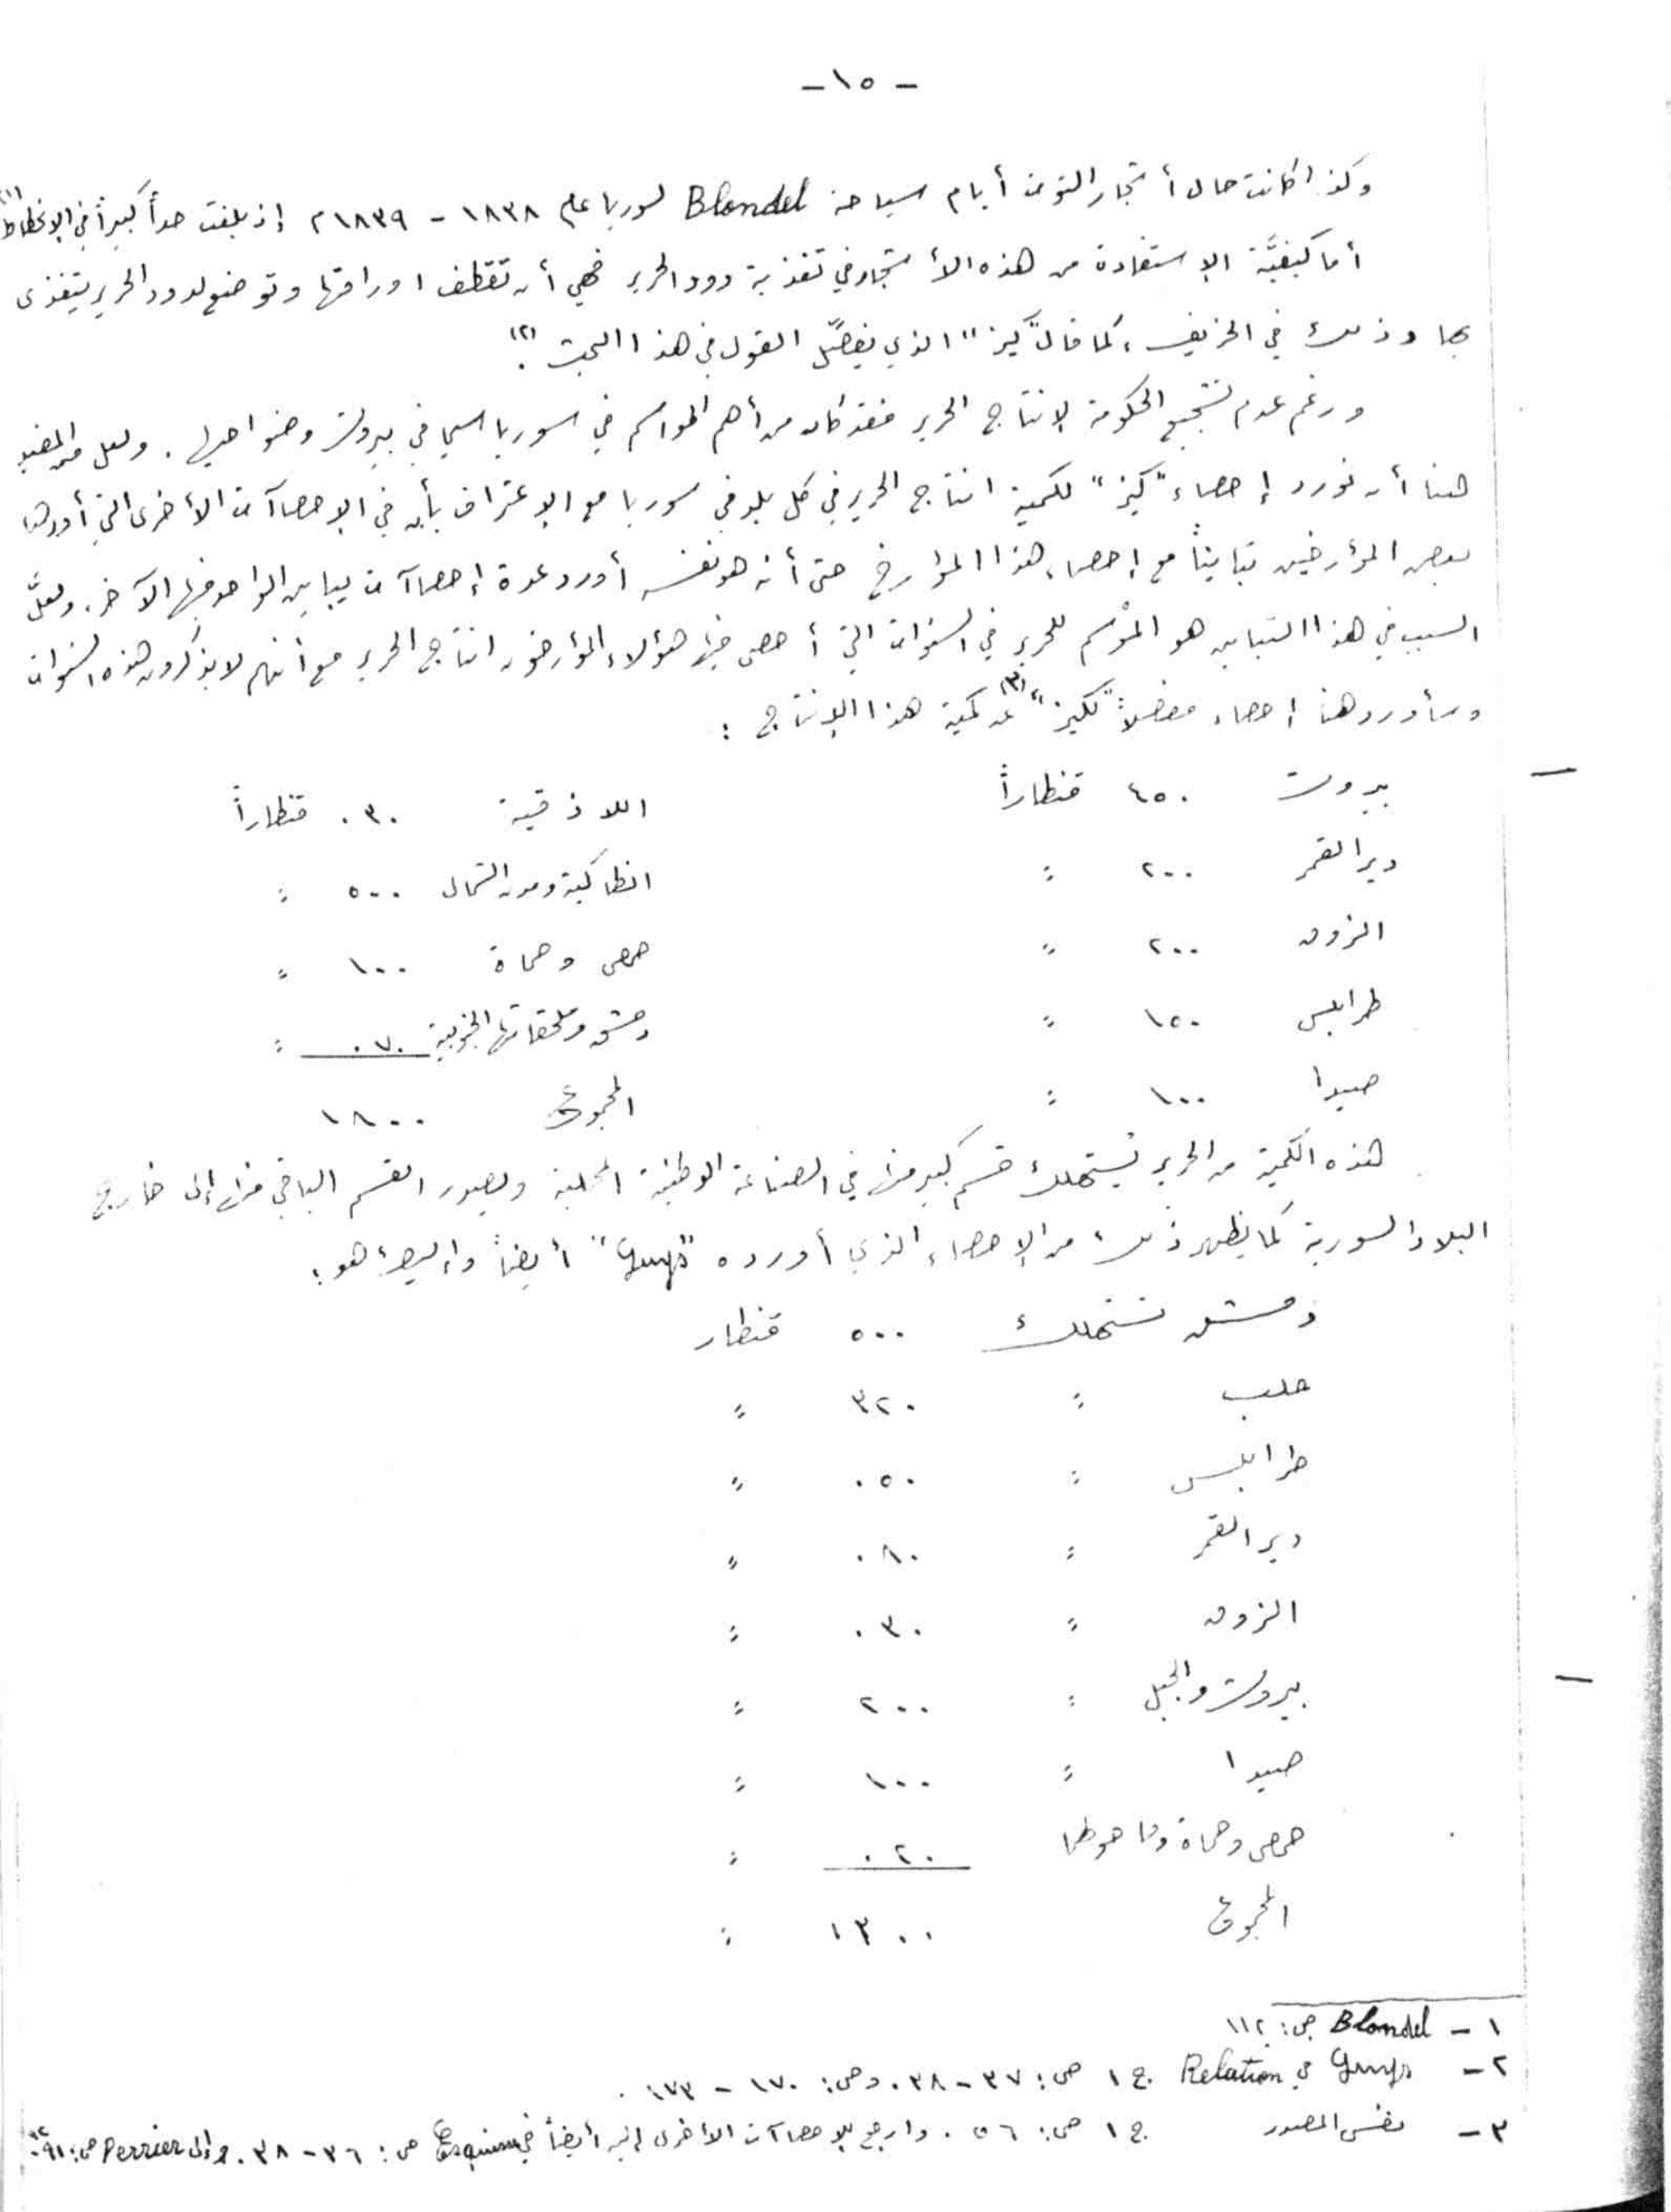 - ١٥ -
وكذا كانت حال أشجار التوت أيام سياحة Blondel لسوريا عام ١٨٣٨ - ١٨٣٩ م إذ بلغت حداً كبيراً في الإنحطاط (١)
أما كيفيَّة الإستفادة من هذه الأشجار في تغذية دود الحرير فهي أن تقطف اوراقها وتوضع لدود الحرير يتغذى
بها وذلك في الخريف، كما قال "كيز" الذي يفصّل القول في هذا البحث (٢).
ورغم عدم تشجيع الحكومة لإنتاج الحرير فقد كان من أهم المواسم في سوريا سيما في بيروت وضواحيها. ولعل من المفيد
هنا أن نورد إحصاء "كيز" لكمية انتاج الحرير في كل بلد في سوريا مع الإعتراف بأن في الإحصاآت الأخرى التي أوردها
بعض المؤرخين تبايناً مع إحصاء هذا المؤرخ حتى أنه هو نفسه أورد عدة إحصاآت يباين الواحد منها الآخر. ولعلَّ
السبب في هذا التباين هو الموْسم للحرير في السنوات التي أحصى فيها هؤلاء المؤرخون انتاج الحرير مع أنهم لا يذكرون هذه السنوات
وسأورد هنا إحصاء مفصلاً "لكيز" (٣) عن كمية هذا الإنتاج :
بيروت ٤٥٠ قنطاراً اللاذقية ٠٣٠ قنطاراً
دير القمر ٢٠٠ : انطاكية ومدن الشمال ٥٠٠ :
الزوق ٢٠٠ : حمص وحماة ١٠٠ :
طرابلس ١٥٠ : دمشق وملحقاتها الجنوبية ٠٧٠ :
صيدا ١٠٠ : المجموع ١٨٠٠
هذه الكمية من الحرير يُستهلك قسم كبير منها في الصناعة الوطنية المحلية ويصدر القسم الباقي منها إلى خارج
البلاد السورية كما يظهر ذلك من الإحصاء الذي أورده "Guys" أيضاً وإليك هو :
دمشق تستهلك ٥٠٠ قنطار
حلب : ٣٢٠ :
طرابلس : ٠٥٠ :
دير القمر : ٠٨٠ :
الزوق : ٠٣٠ :
بيروت والجبل : ٢٠٠ :
صيدا : ١٠٠ :
حمص وحماة وما حولهما ٠٢٠ :
المجموع ١٣٠٠ :
١ - Blondel ص: ١١٢
٢ - Guys في Relation ج ١ ص: ٣٧ - ٣٨. وص: ١٧٠ - ١٧٣.
٣ - نفس المصدر ج ١ ص: ٥٦. وارجع للإحصاآت الأخرى إليه أيضاً في ص: ٣٦ - ٣٨. وإلى Perrier ص: